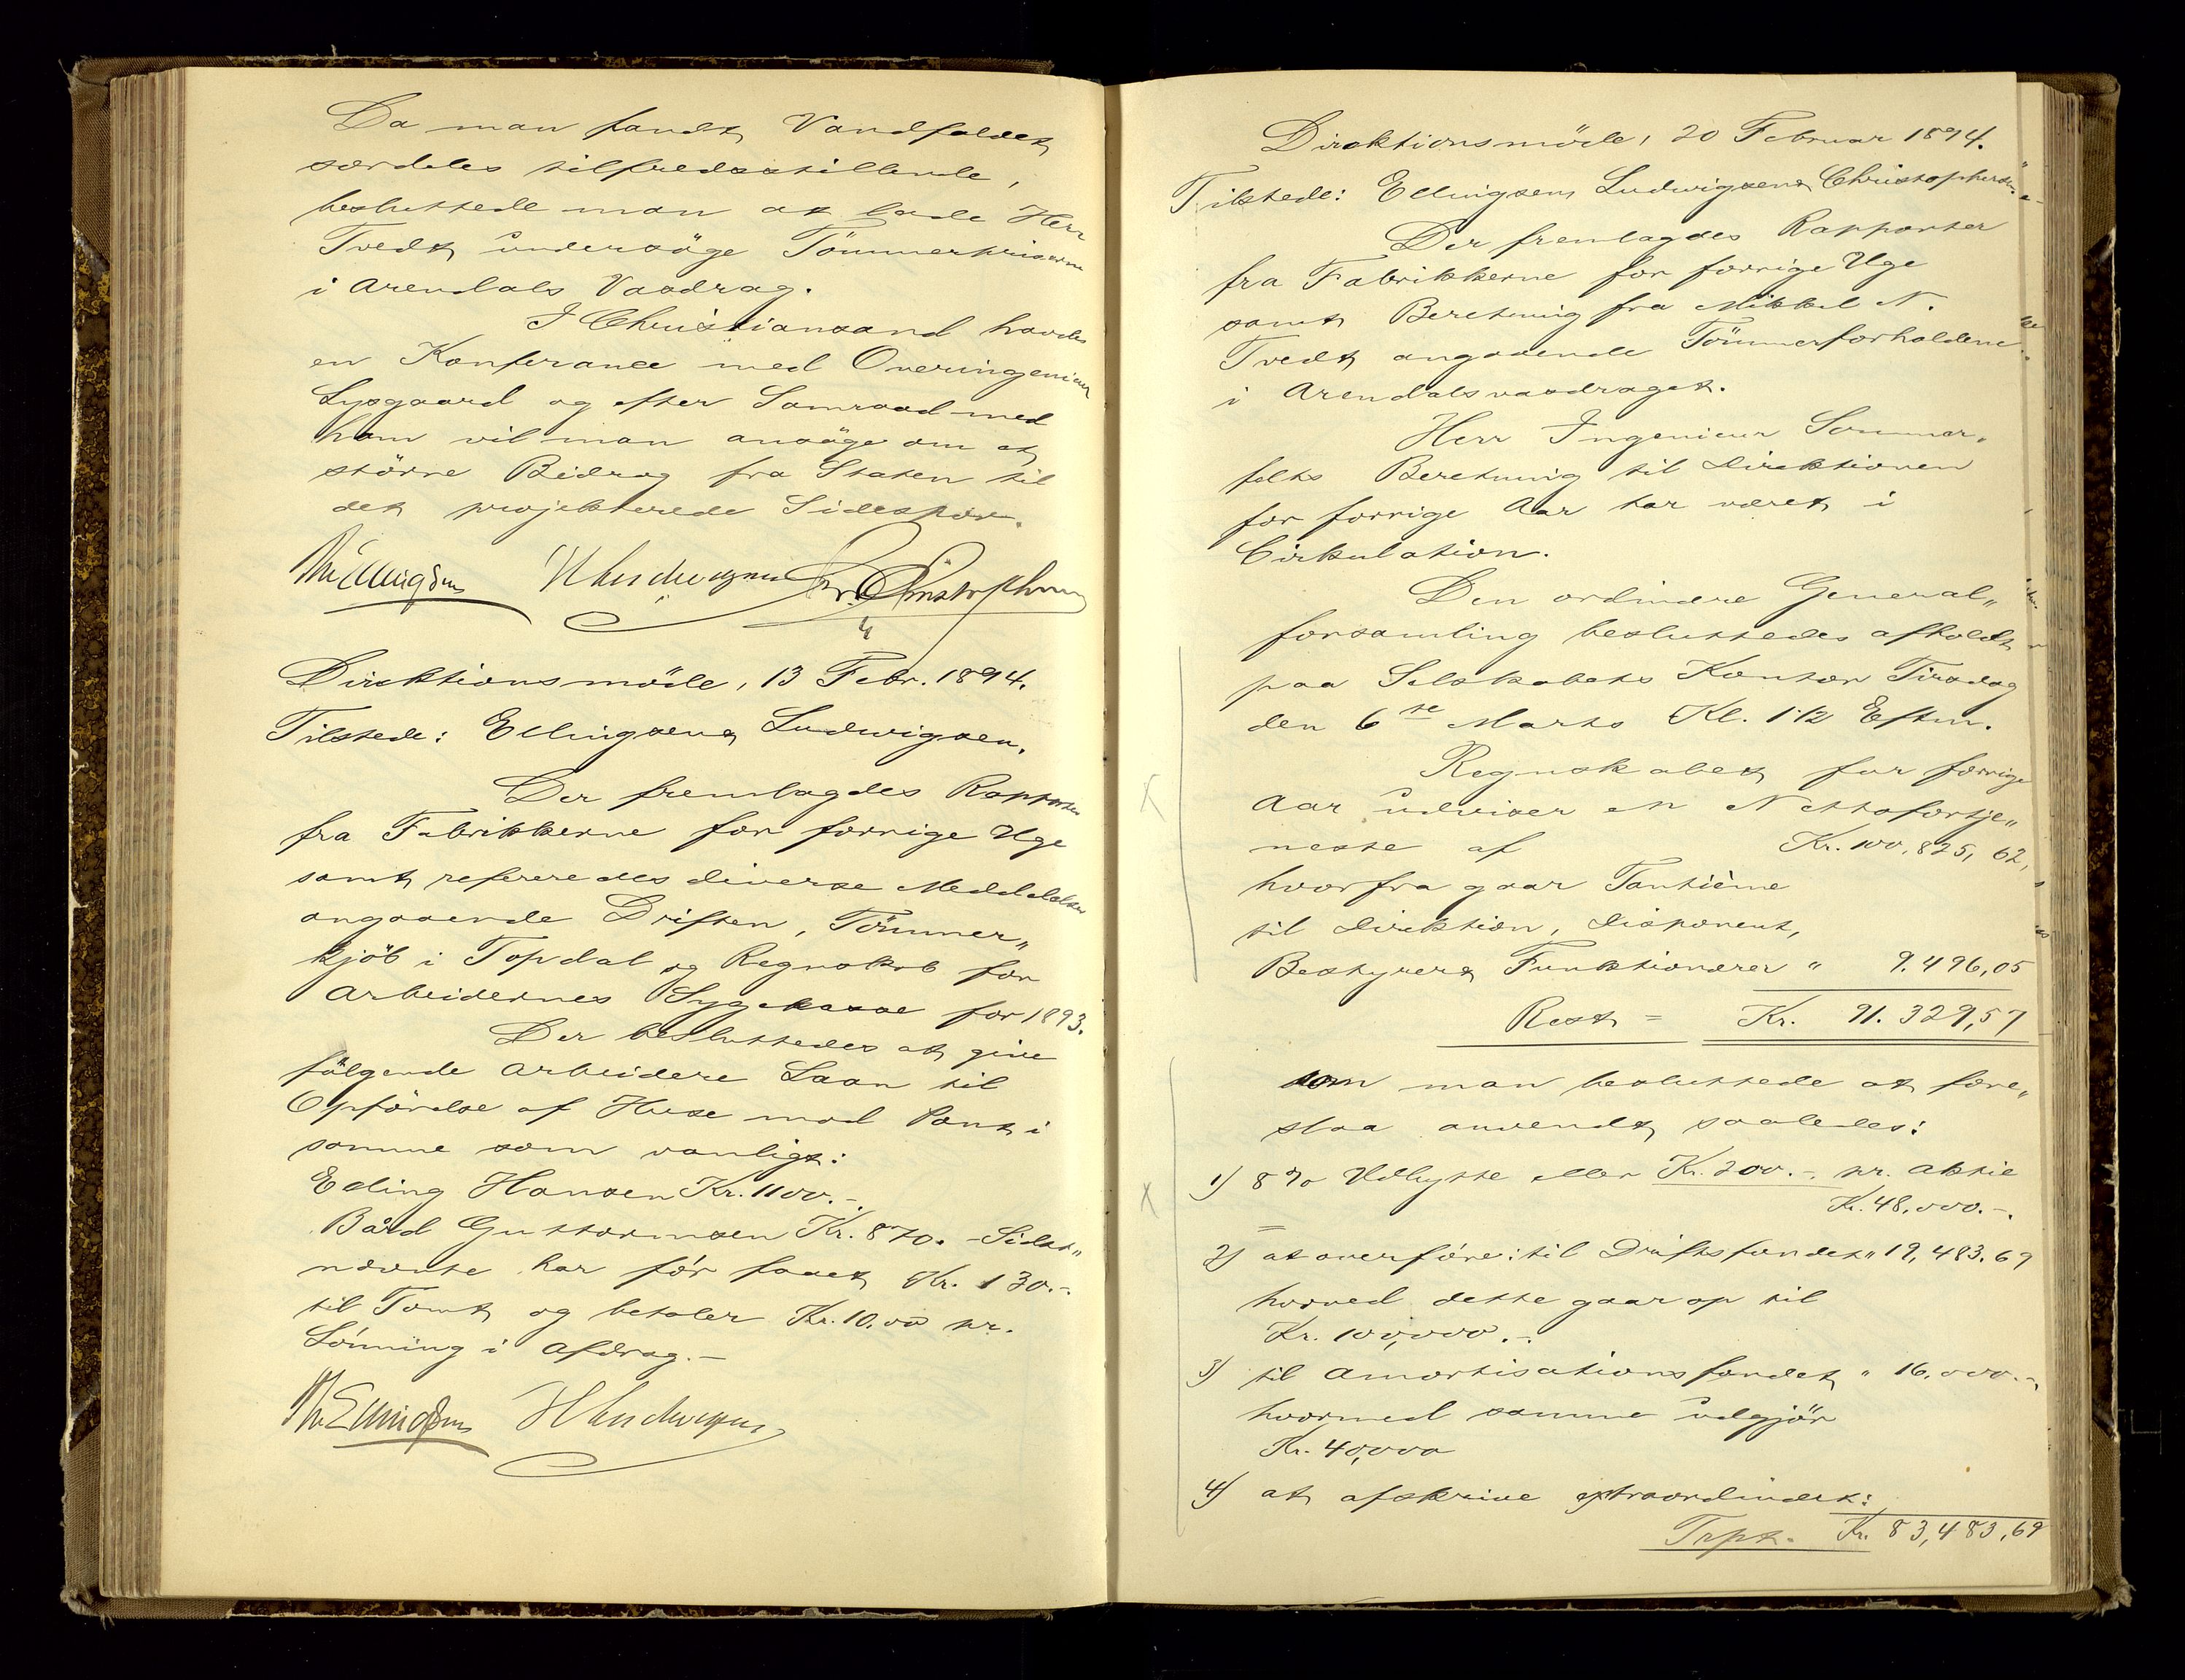 Da man fandt Vandfaldet
særdeles tilfredsstillende,
besluttede man at lade Herr
Tvedt undersöge Tömmerpriserne
i Arendals Vasdrag.
I Christiansand havdes
en Konferance med Overingeniør
Lysgaard og efter Samraad med
ham vil man ansöge om et
större Bidrag fra Staten til
det projekterede Sidespor.
Th Ellingsen H Ludwigsen Chr. Christophersen
Direktionsmöde, 13 Febr. 1894.
Tilstede: Ellingsen & Ludwigsen.
Der fremlagdes Rapporter
fra Fabrikkerne for forrige Uge
samt refereredes diverse Meddelelser
angaaende Driften, Tömmer„
kjöb i Topdal og Regnskab for
Arbeidernes Sygekasse for 1893.
Der besluttedes at give
fölgende Arbeidere Laan til
Opförelse af Huse mod Pant i
samme som vanligt:
Eding Hansen Kr. 1100.–
Bård Guttormsen Kr. 870.– Sidst„
nævnte har för faaet Kr. 130.–
til Tomt og betaler Kr. 10.00 pr.
Lönning i Afdrag.–
Th Ellingsen H Ludwigsen
Direktionsmöde, 20 Februar 1894.
Tilstede: Ellingsen, Ludwigsen & Christophersen
Der fremlagdes Rapporter
fra Fabrikkerne for forrige Uge
samt Beretning fra Mikkel N.
Tvedt angaaende Tömmerforholdene
i Arendalsvasdraget.
Herr Ingenieur Sommer„
felts Beretning til Direktionen
for forrige Aar har været i
Cirkulation.
Den ordinære General„
forsamling besluttedes afholdt
paa Selskabets Kontor Tirsdag
den 6te Marts Kl. 1 1/2 Eftm.
Regnskabet for forrige
Aar udviser en Nettofortje„
neste af Kr. 100,825,62,
hvorfra gaar Tantième
til Direktion, Disponent,
Bestyrer & Funktionærer " 9.496,05
Rest = Kr. 91.329,57
som man besluttede at fore„
slaa anvendt saaledes:
1) 8 % Udbytte eller Kr. 200.– pr. Aktie
Kr. 48,000.–.
2) at overföre til Driftsfondet " 19,483.69
hvorved dette gaar op til
Kr. 100,000.–
3) til Amortisationsfondet " 16,000.–
hvormed samme udgjör
Kr. 40,000
4) at afskrive extraordinært:
Trpt. Kr. 83,483,69